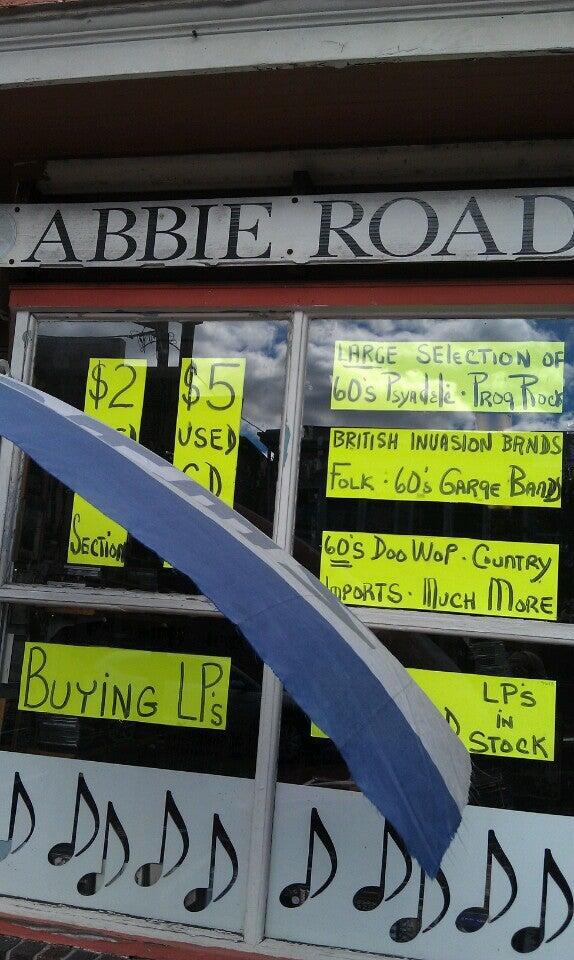 ABBIE ROAD
$2
SECTION
$5
USED
CD
LARGE SELECTION OF
60's PSYADELC · PROG ROCK
BRITISH INVASION BANDS
FOLK · 60's GARGE BANDS
60's DOO WOP · COUNTRY
IMPORTS · MUCH MORE
BUYING LP's
LP's
IN
STOCK